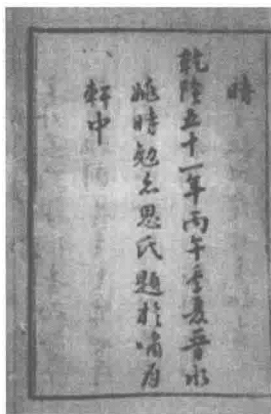 時
乾隆五十一年丙午季夏晉水
姚時勉念思氏題於嘯月
軒中